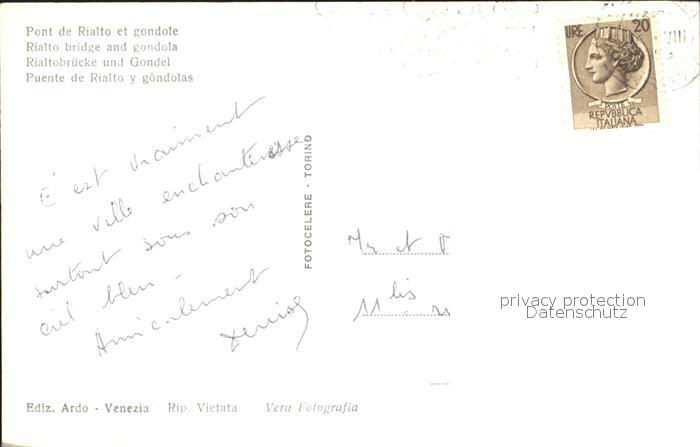 Pont de Rialto et gondole
Rialto bridge and gondola
Rialtobrücke und Gondel
Puente de Rialto y gòndolas
LIRE 20
POSTE
REPVBBLICA
ITALIANA
C'est vraiment
une ville enchanteresse
surtout sous son
ciel bleu -
Amicalement
Denise
FOTOCELERE - TORINO
Mr et
11 bis
privacy protection
Datenschutz
Ediz. Ardo - Venezia Rip. Vietata Vera Fotografia